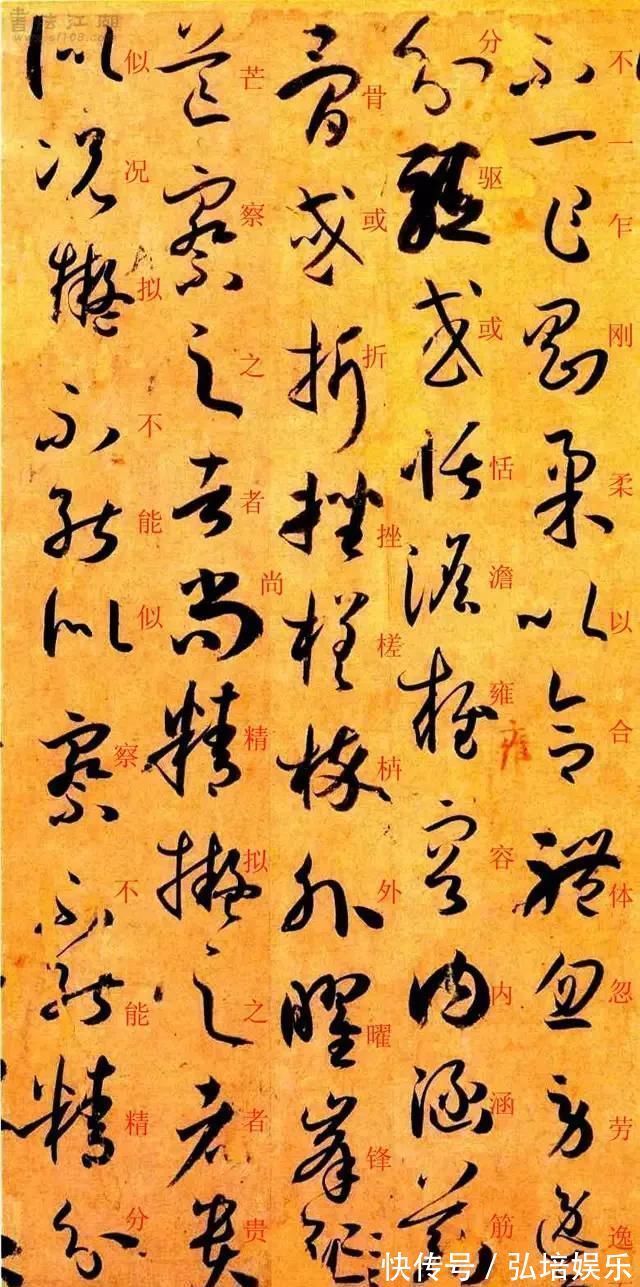 书法江湖
www.sf108.com
不一乍刚柔以合体忽劳逸
分驱或恬澹雍容内涵筋
骨或折挫槎枿外曜锋
芒察之者尚精拟之者贵
似况拟不能似察不能精分
快传号/弘培娱乐